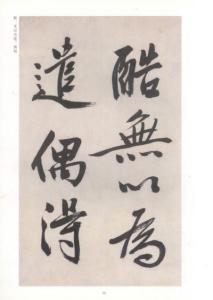 酷無以為
遣偶得